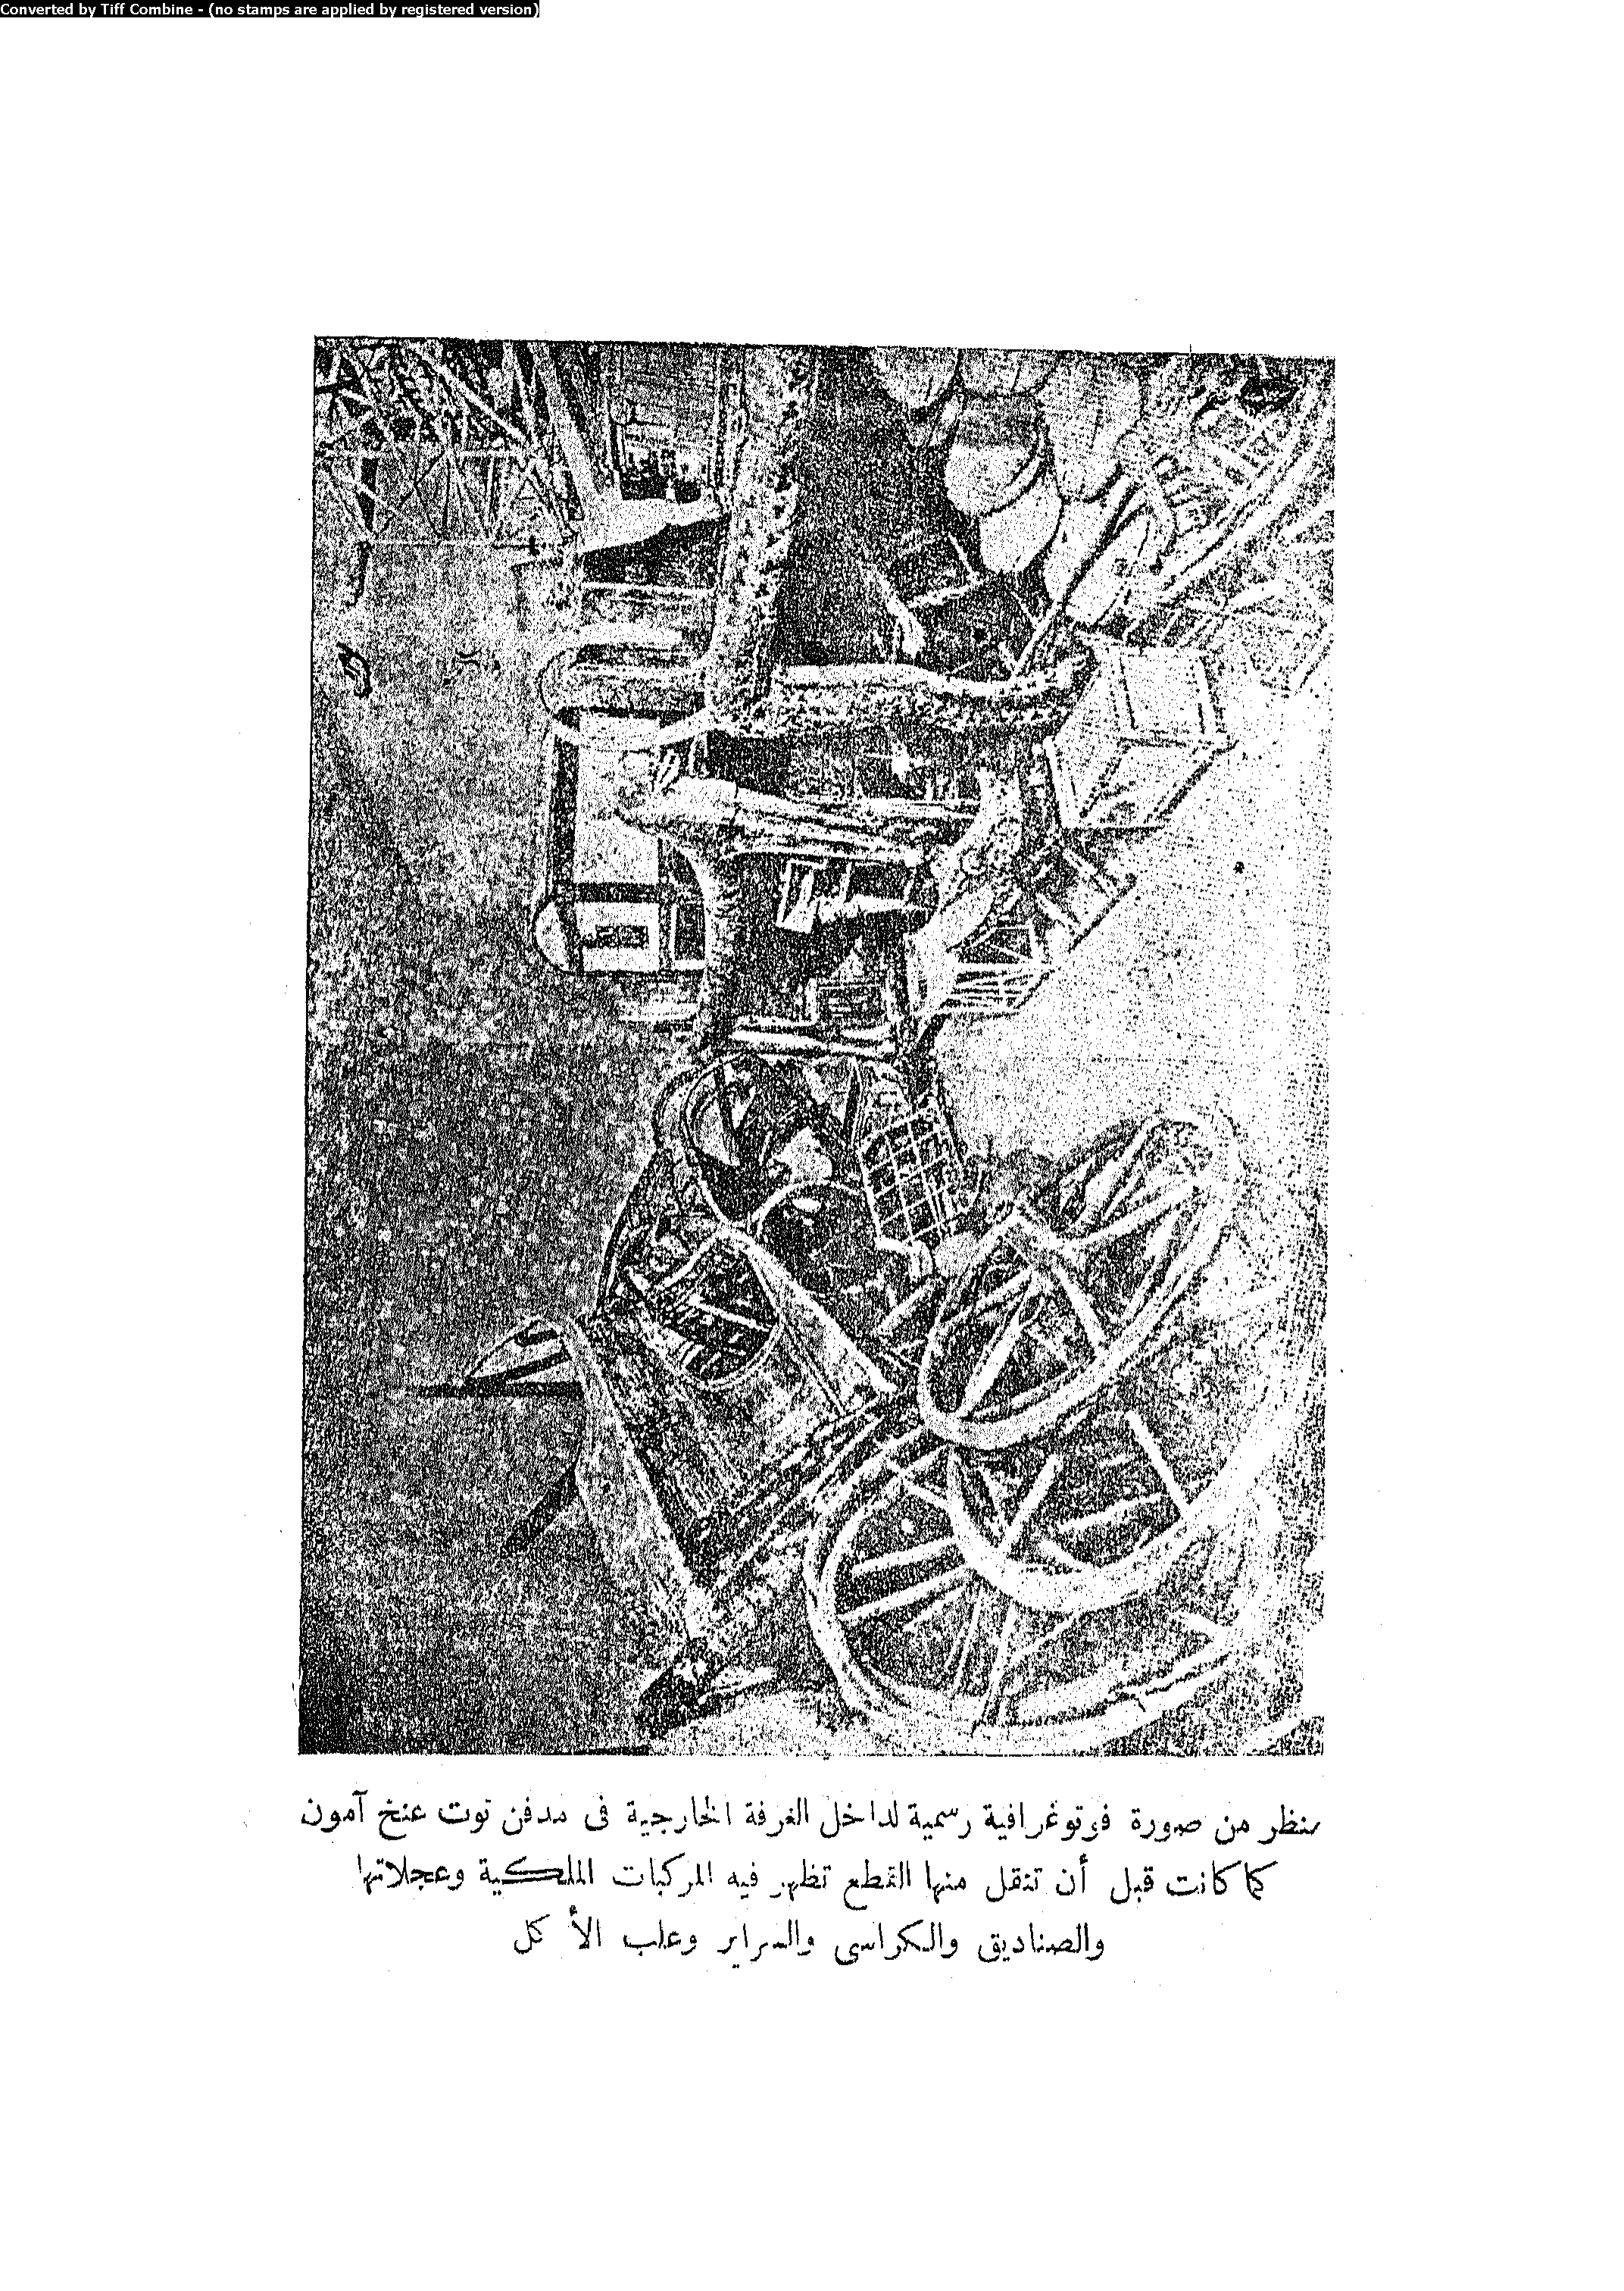 Converted by Tiff Combine - (no stamps are applied by registered version)
منظر من صورة فوتوغرافية رسمية لداخل الغرفة الخارجية فى مدفن توت عنخ آمون
كما كانت قبل أن تنقل منها القطع تظهر فيه المركبات الملكية وعجلاتها
والصناديق والكراسى والسراير وعلب الأكل